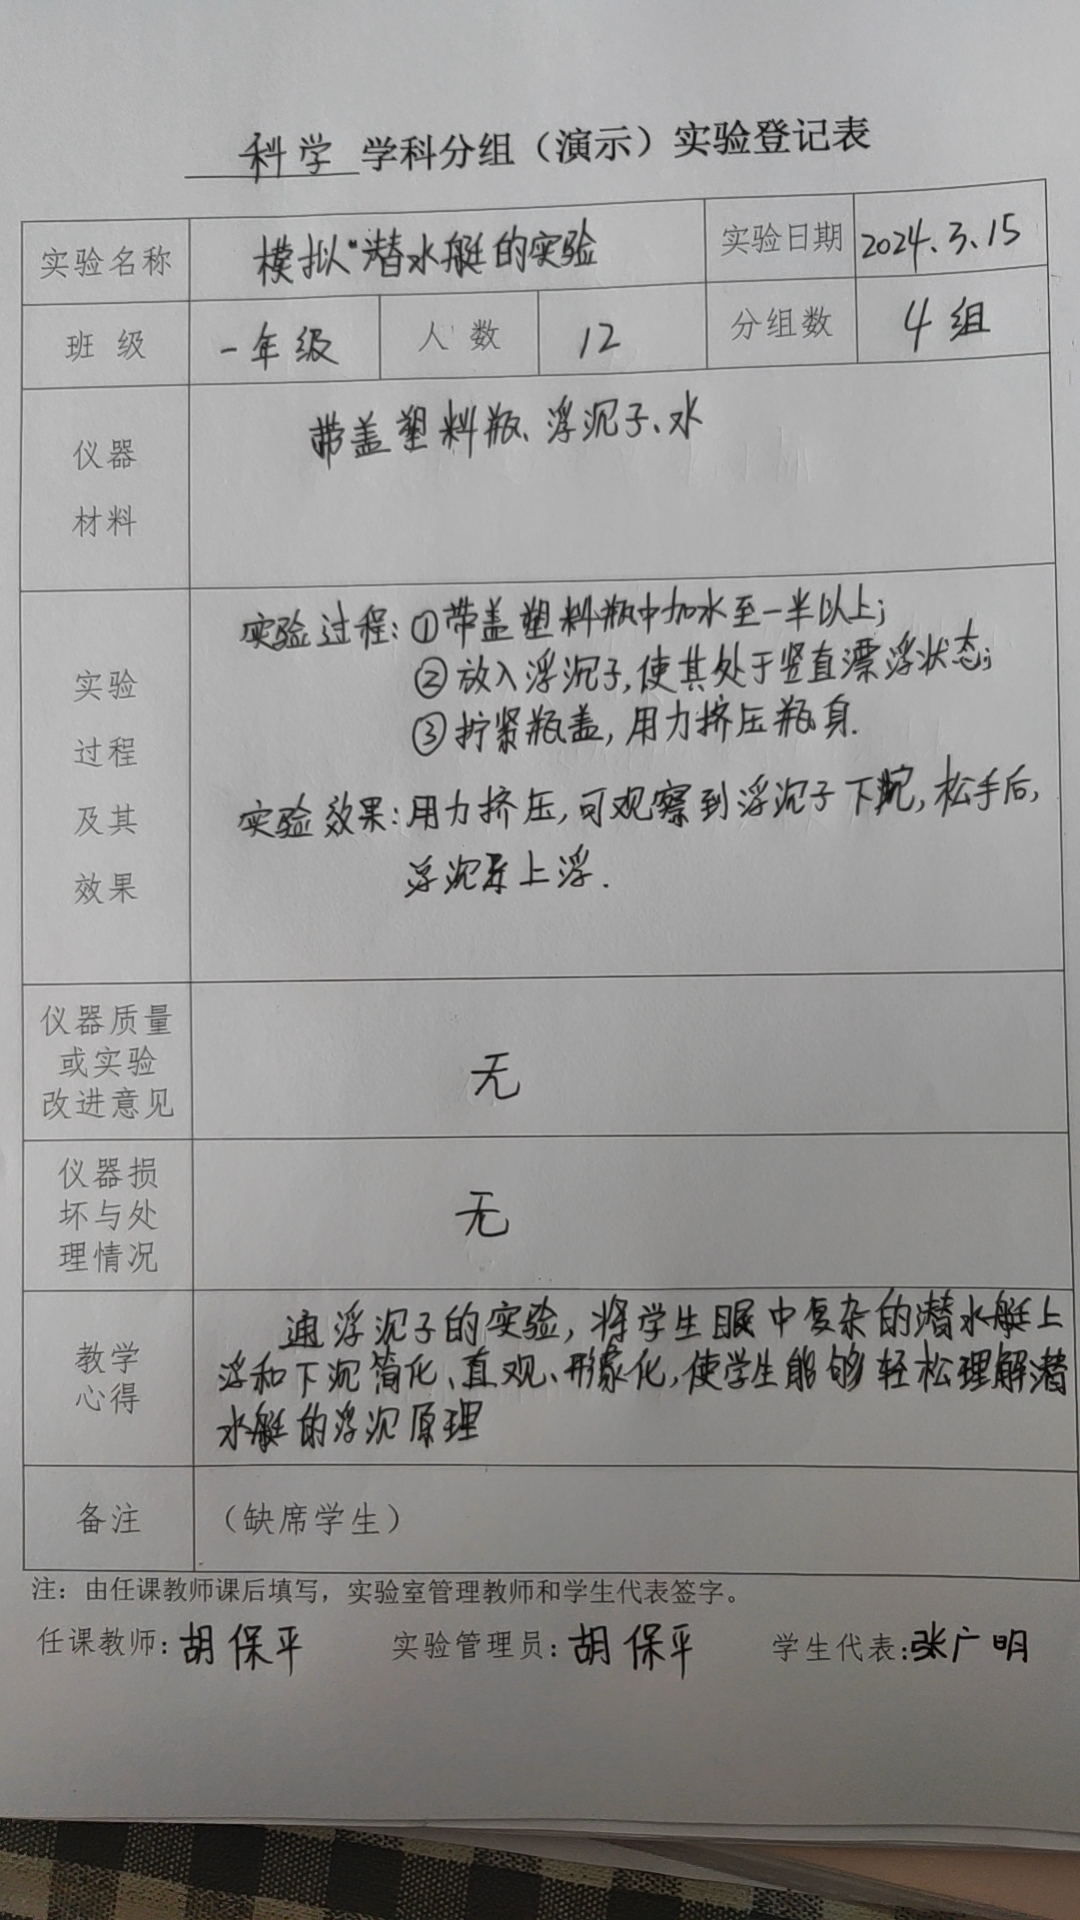 科学 学科分组（演示）实验登记表
实验名称 模拟“潜水艇的实验 实验日期 2024.3.15
班 级 一年级 人 数 12 分组数 4组
仪器
材料
带盖塑料瓶、浮沉子、水
实验
过程
及其
效果
实验过程：①带盖塑料瓶中加水至一半以上；
②放入浮沉子，使其处于竖直漂浮状态；
③拧紧瓶盖，用力挤压瓶身.
实验效果：用力挤压，可观察到浮沉子下沉，松手后，
浮沉子上浮.
仪器质量
或实验
改进意见
无
仪器损
坏与处
理情况
无
教学
心得
通浮沉子的实验，将学生眼中复杂的潜水艇上
浮和下沉简化、直观、形象化，使学生能够轻松理解潜
水艇的浮沉原理
备注 （缺席学生）
注：由任课教师课后填写，实验室管理教师和学生代表签字。
任课教师：胡保平 实验管理员：胡保平 学生代表：张广明